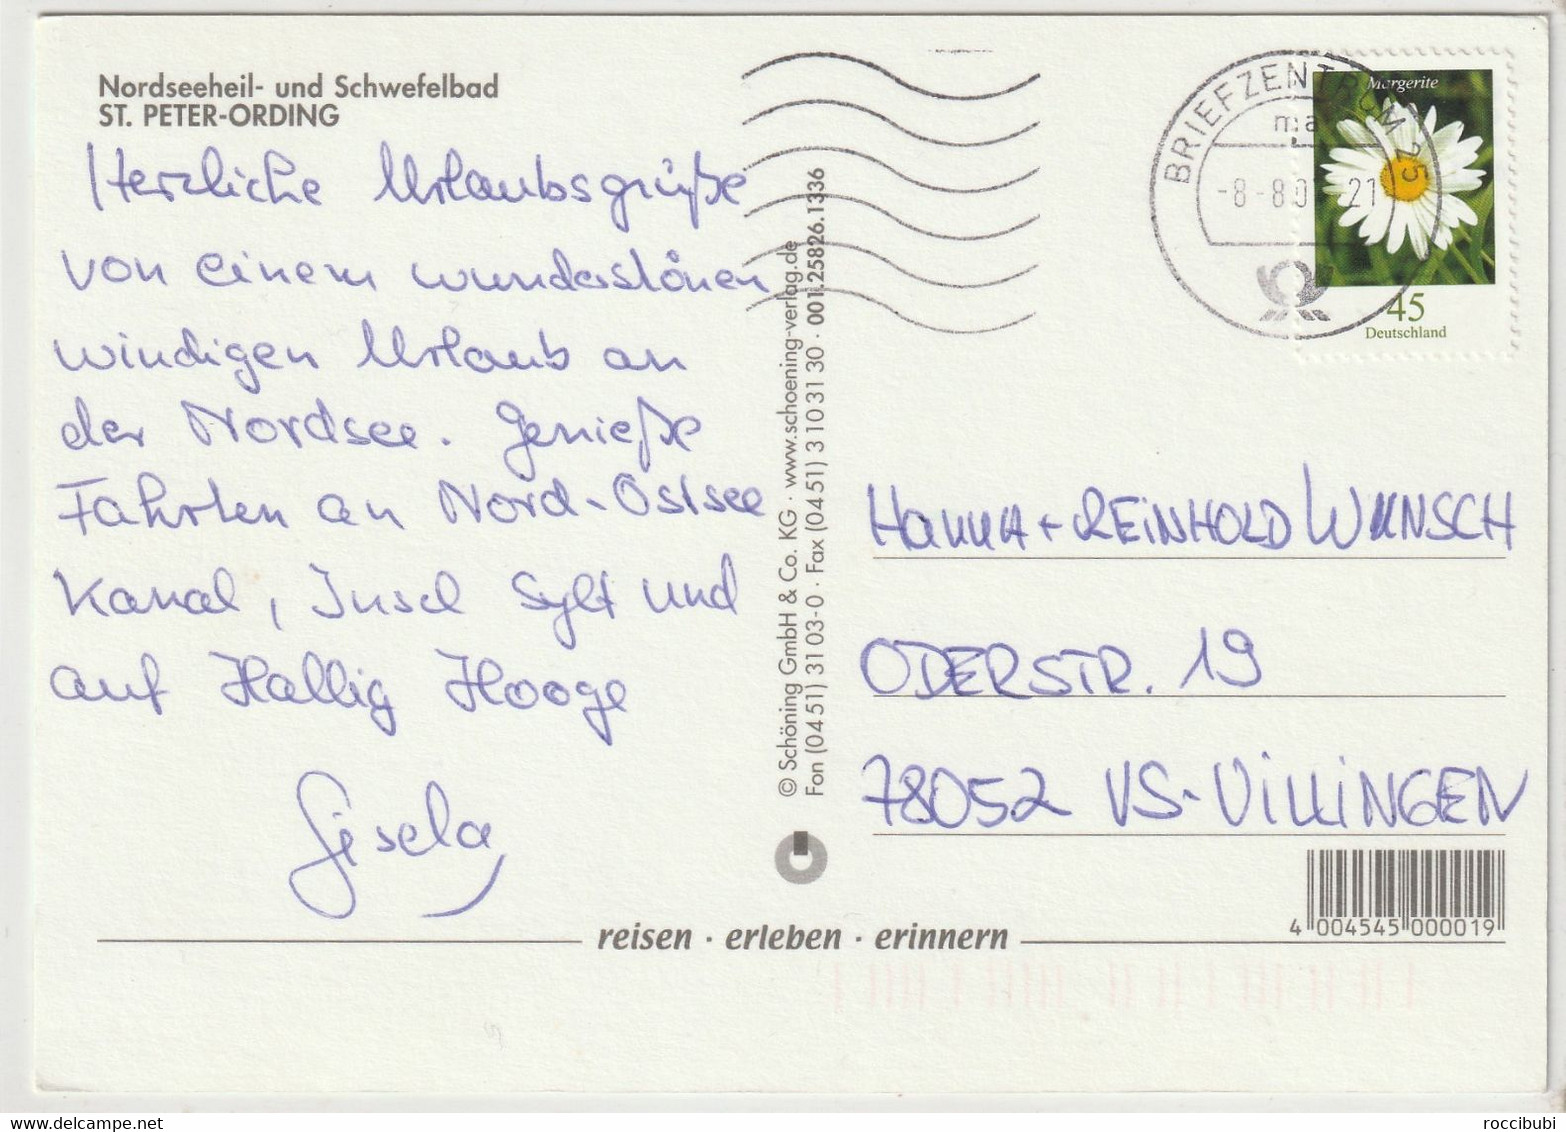 Nordseeheil- und Schwefelbad
ST. PETER-ORDING
Herzliche Urlaubsgrüße
von einem wunderstönen
windigen Urlaub an
der Nordsee. Genieße
Fahrten an Nord-Ostsee
Kanal, Insel Sylt und
auf Hallig Hooge
Gisela
© Schöning GmbH & Co. KG · www.schoening-verlag.de
Fon (04 51) 31 03-0 · Fax (04 51) 3 10 31 30 · 001.25826.1336
BRIEFZENTRUM 25
ma
-8-8.0 -21
Margerite
45
Deutschland
HANNA + REINHOLD WUNSCH
ODERSTR. 19
78052 VS-VILLINGEN
4 004545 000019
reisen · erleben · erinnern
roccibubi